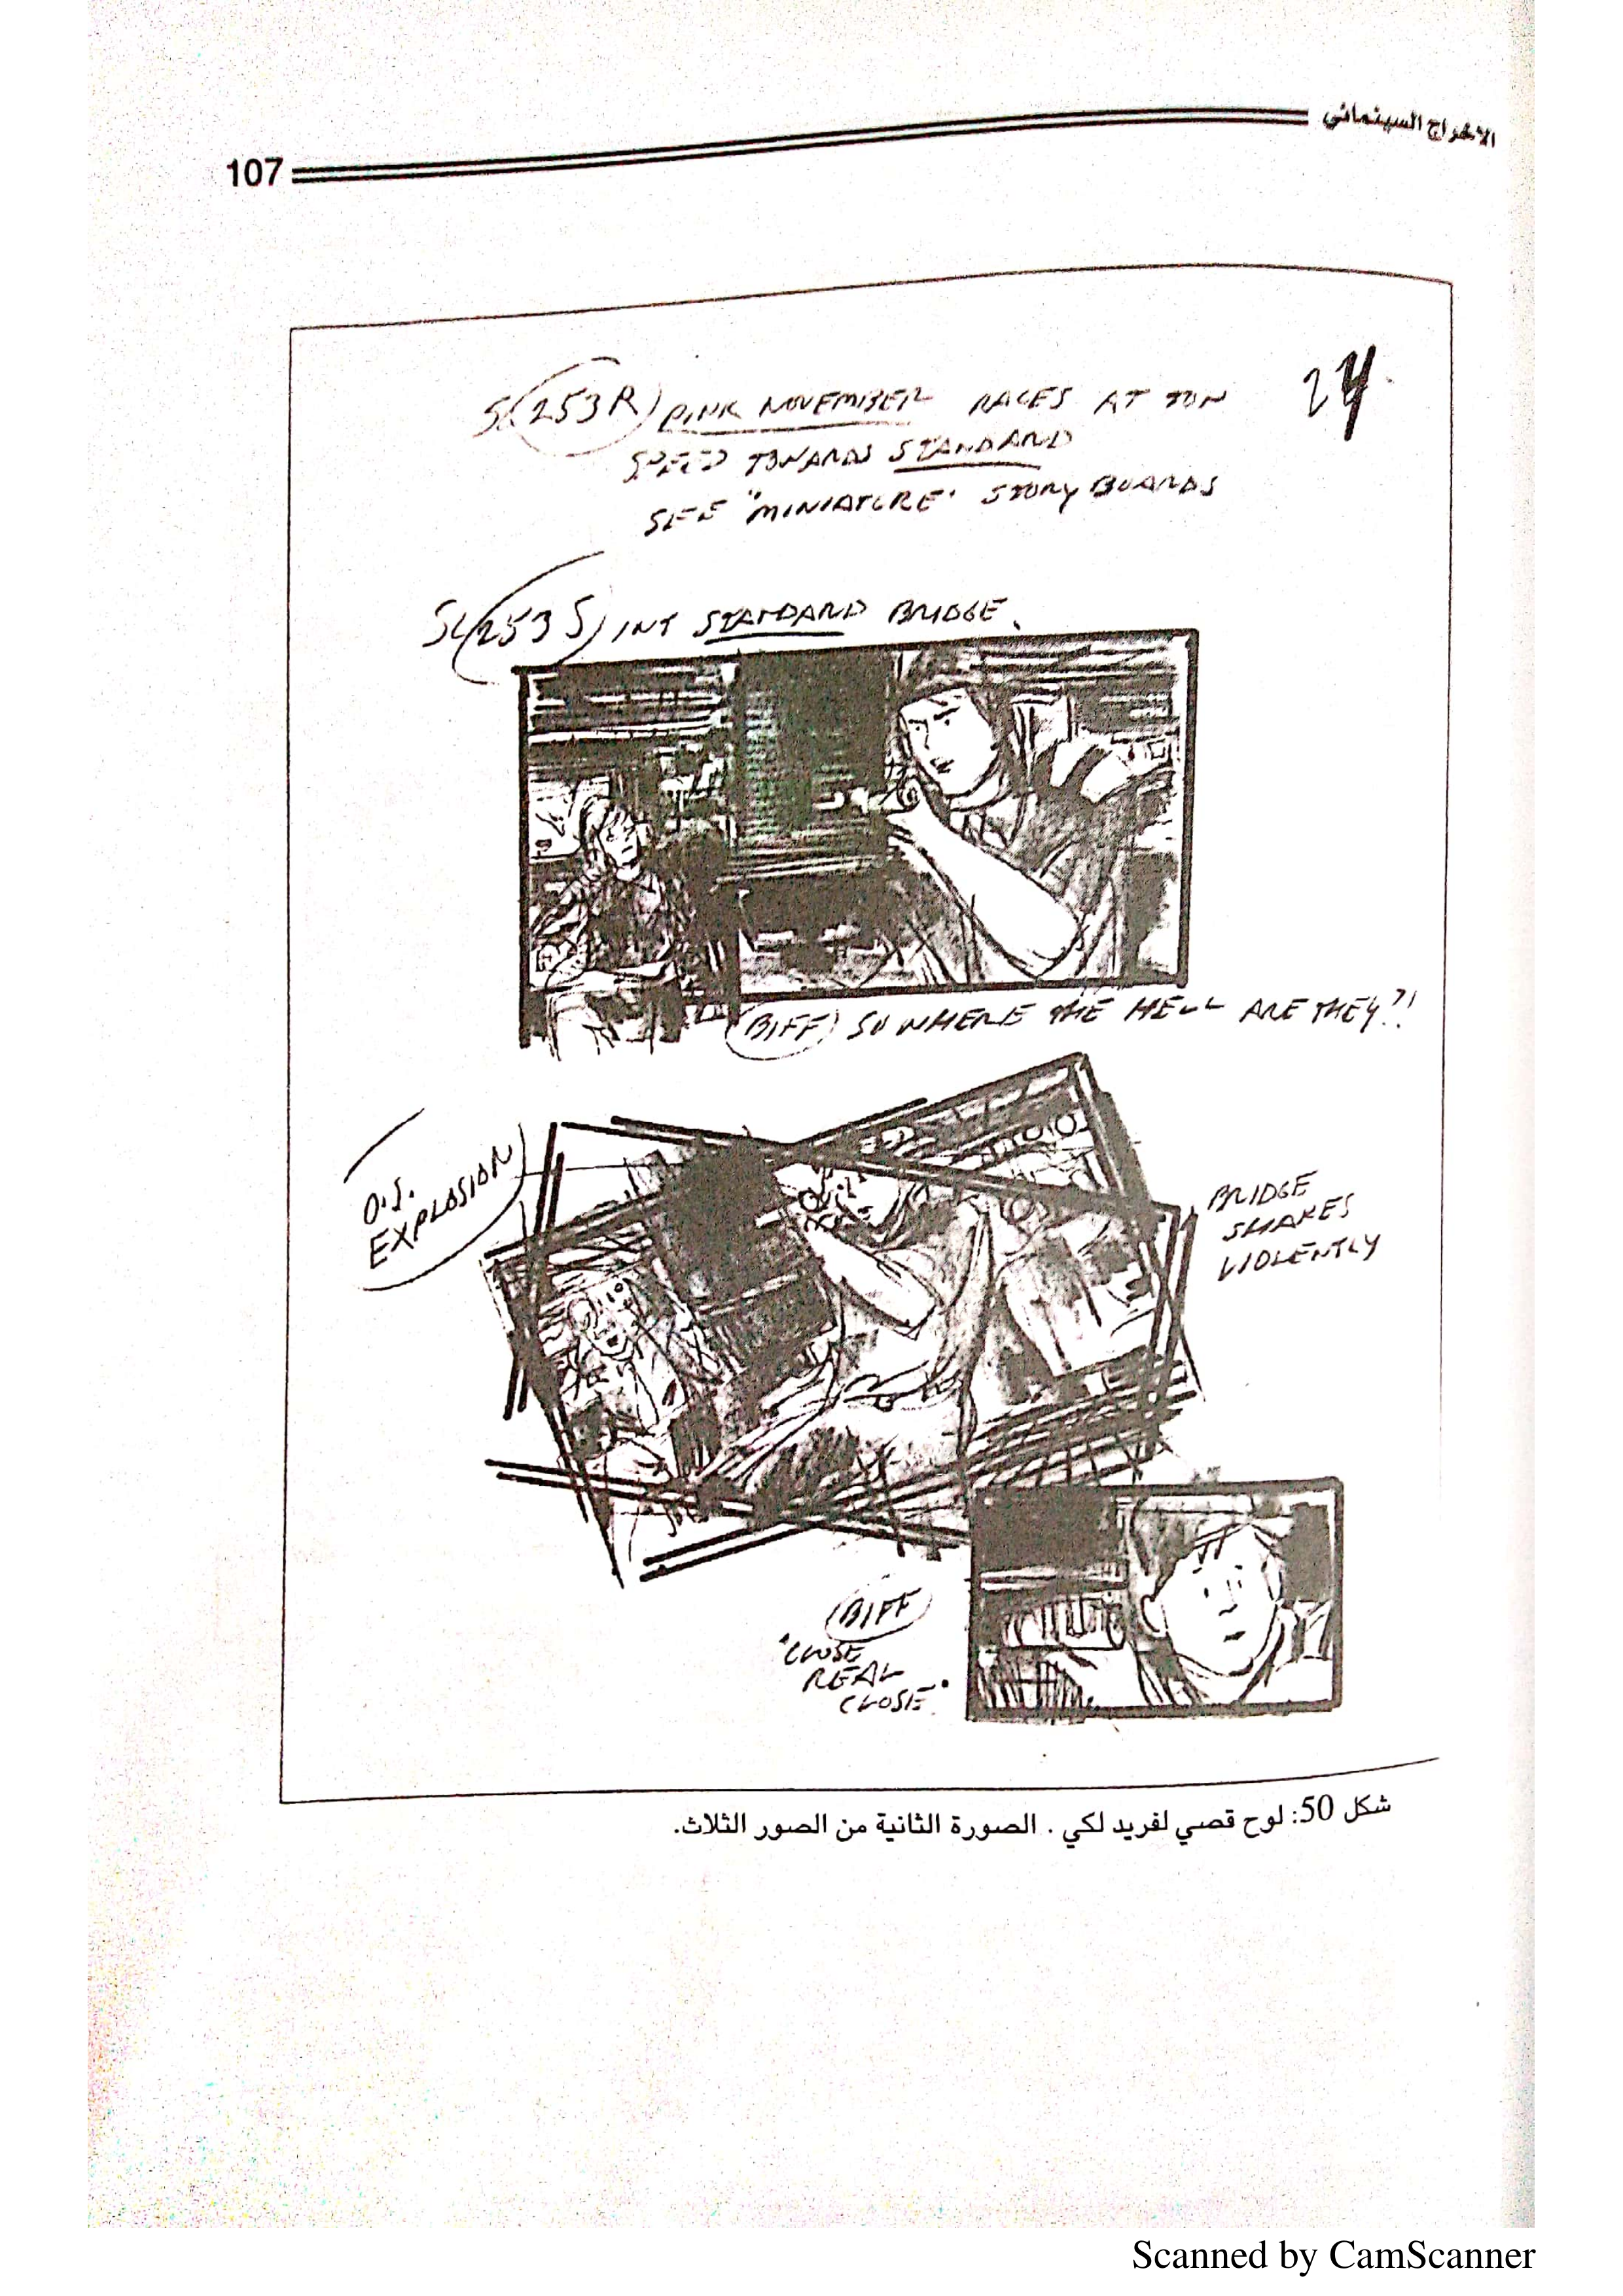 الاخراج السينمائي
107
24
SC 253R PINK NOVEMBER RACES AT TOP
SPEED TOWARDS STANDARD
SEE "MINIATURE" STORY BOARDS
SC 253 S INT STANDARD BRIDGE.
BIFF SO WHERE THE HELL ARE THEY?!
O.S.
EXPLOSION
BRIDGE
SHAKES
VIOLENTLY
BIFF
"CLOSE
REAL
CLOSE."
شكل 50: لوح قصصي لفريد لكي . الصورة الثانية من الصور الثلاث.
Scanned by CamScanner